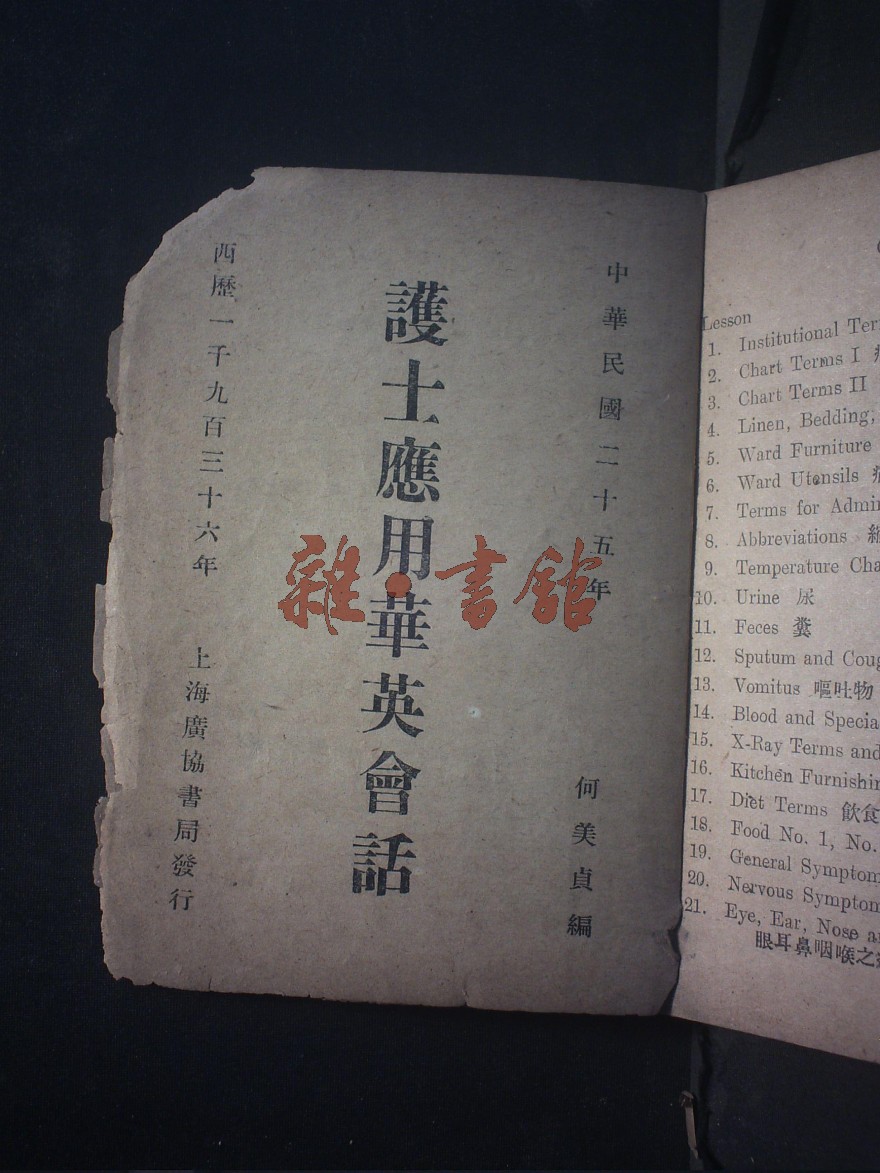 中華民國二十五年
何美貞編
護士應用華英會話
西歷一千九百三十六年
上海廣協書局發行
雜·書舘
Lesson
1. Institutional
2. Chart Terms I
3. Chart Terms II
4. Linen, Bedding,
5. Ward Furniture
6. Ward Utensils
7. Terms for
8. Abbreviations
9. Temperature
10. Urine 尿
11. Feces 糞
12. Sputum and
13. Vomitus 嘔吐物
14. Blood and
15. X-Ray Terms and
16. Kitchen
17. Diet Terms 飲食
18. Food No. 1, No.
19. General
20. Nervous
21. Eye, Ear, Nose
眼耳鼻咽喉之